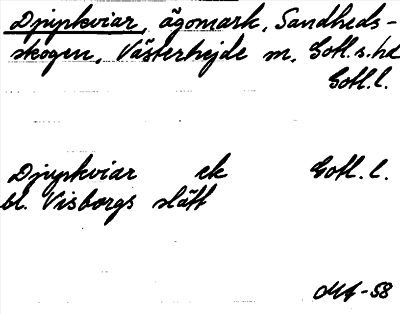 Djupkviar, ägomark, Sandheds-
skogen, Västerhejde sn, Gotl. s. hd
Gotl. l.
Djupkviar ek Gotl. l.
bl. Visborgs slätt
MA-58